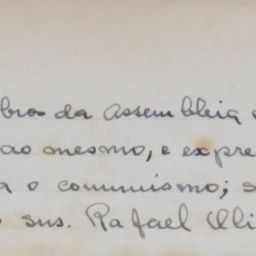 bros da Assembleia
ao mesmo, e expre
a o communismo; s
sns. Rafael Oli